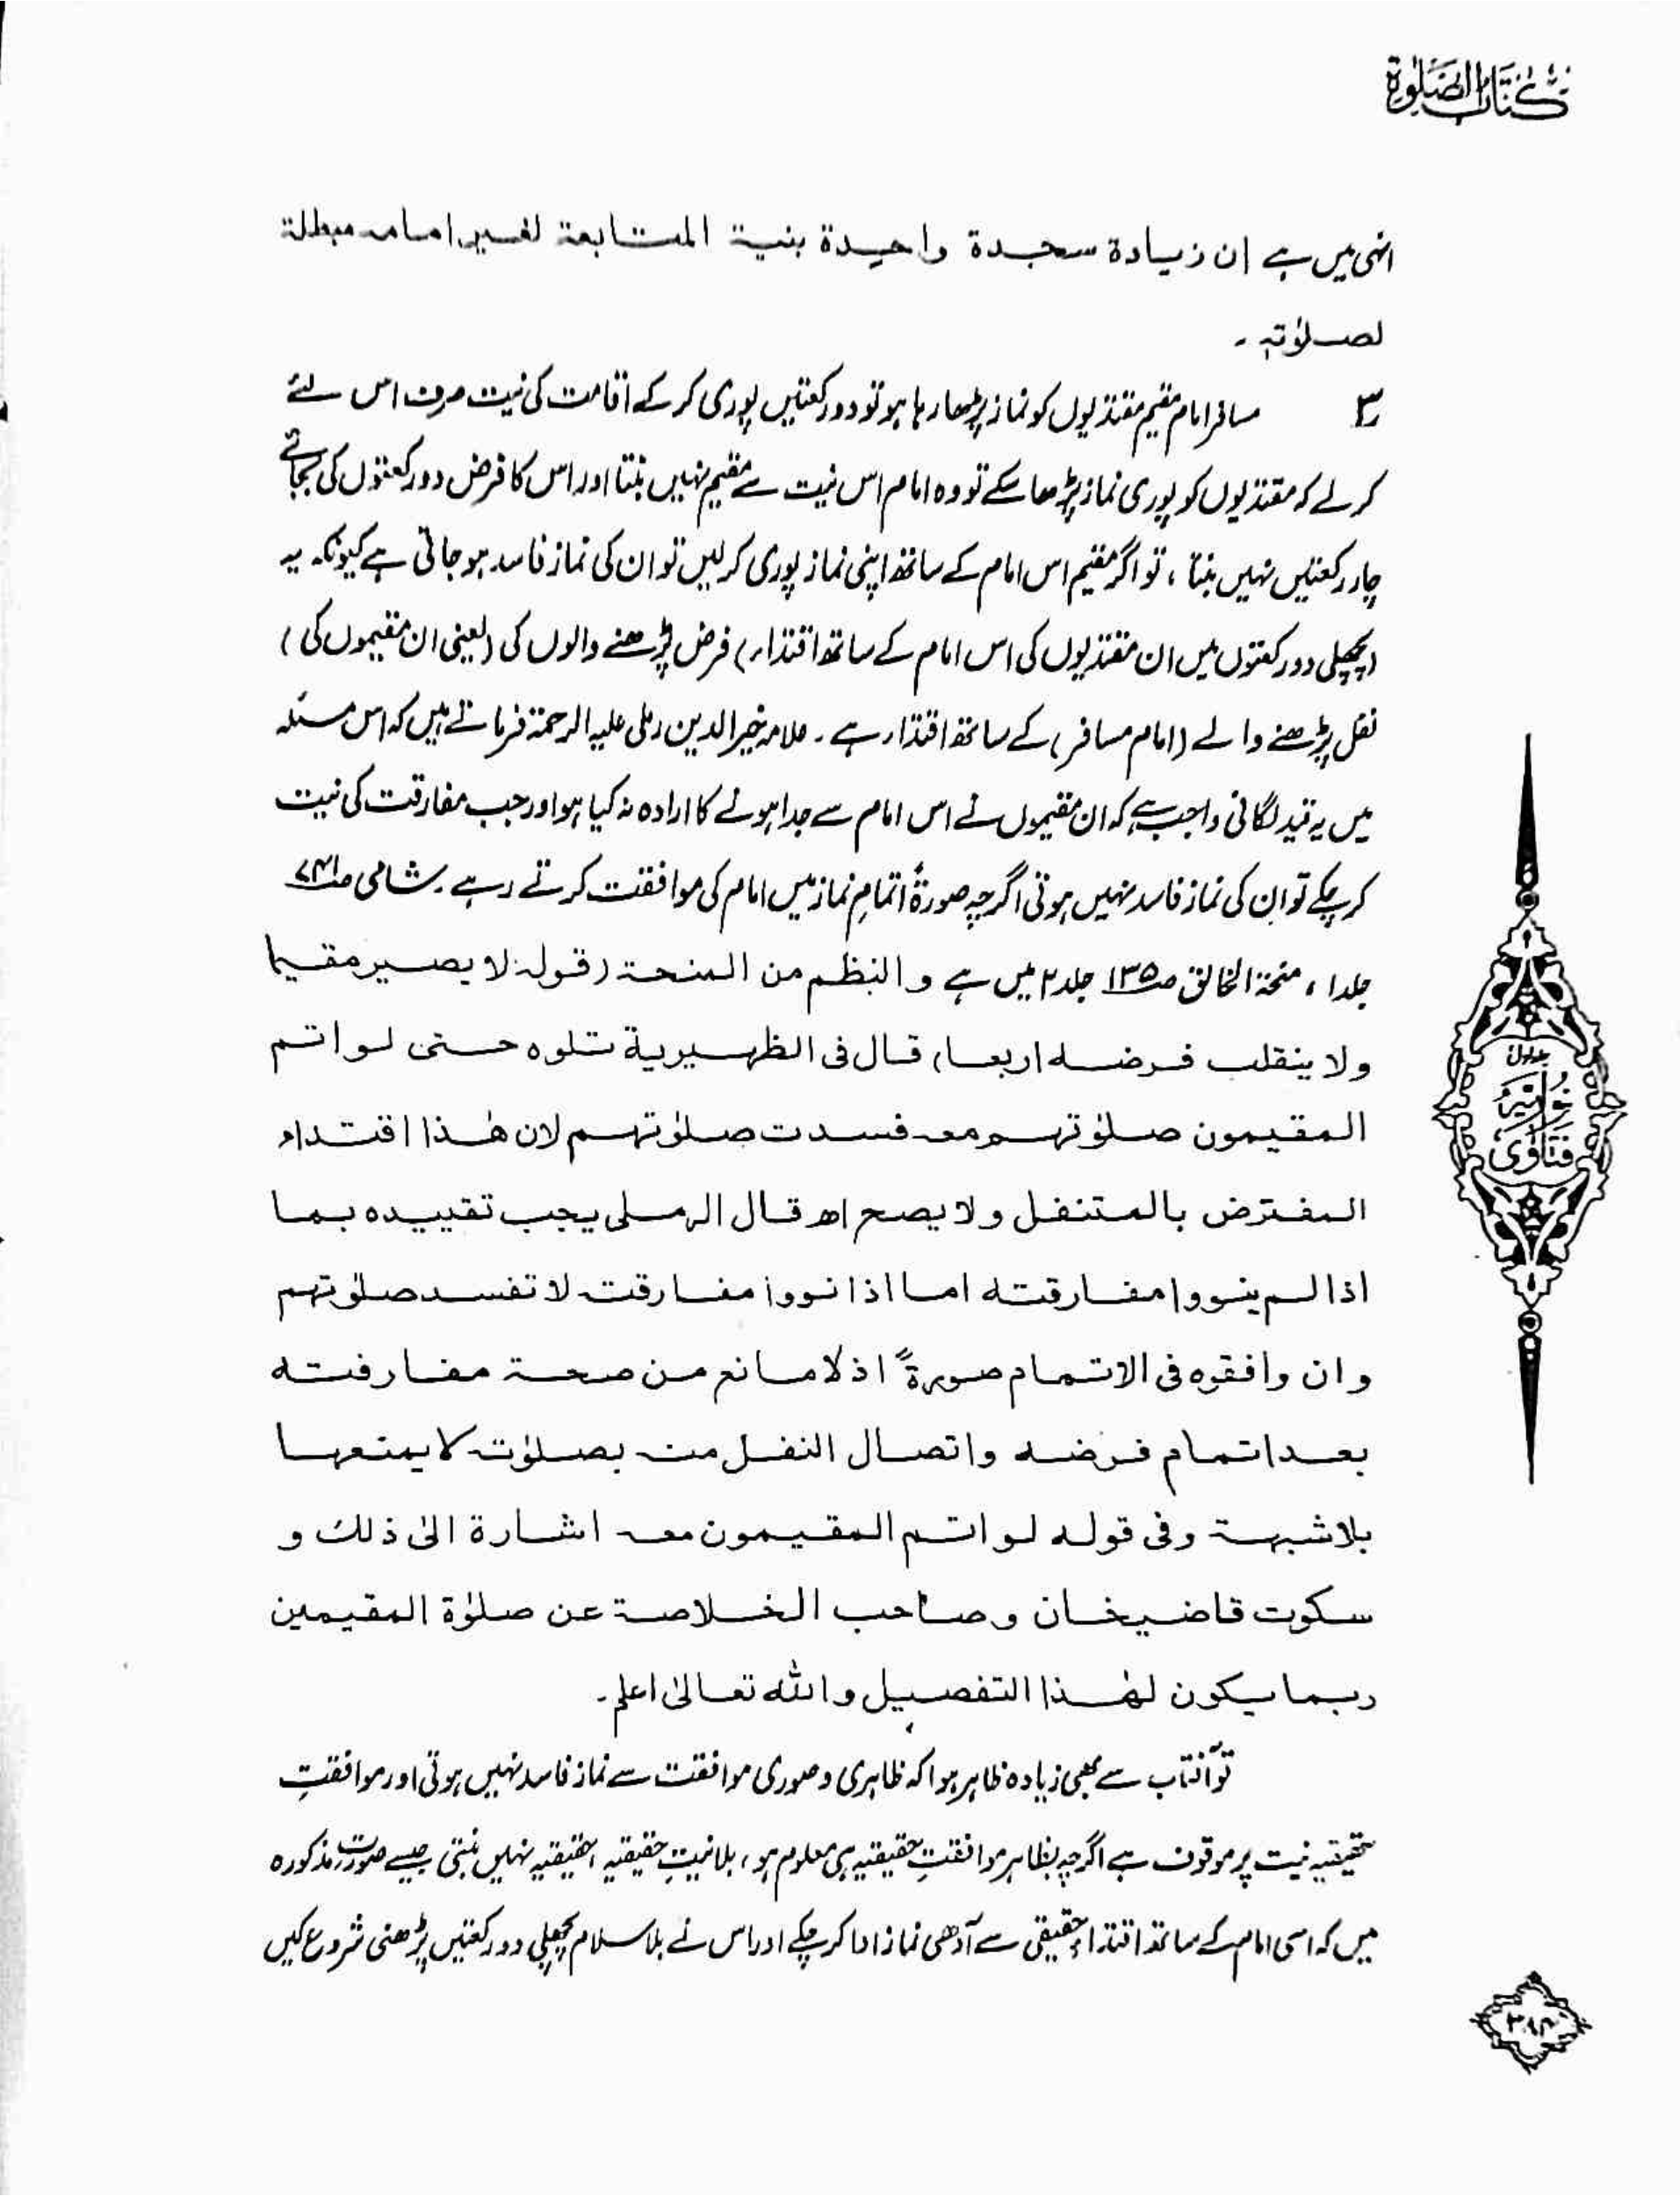 كتاب الصلوة
انہی میں ہے ان زيادة سجدة واحدة بنية المتابعة لغير امامه مبطلة
لصلوٰتہ۔
۳ مسافر امام مقیم مقتدیوں کو نماز پڑھا رہا ہو تو دو رکعتیں پوری کر کے اقامت کی نیت صرف اس لئے
کر لے کہ مقتدیوں کو پوری نماز پڑھا سکے تو وہ امام اس نیت سے مقیم نہیں بنتا اور اس کا فرض دو رکعتوں کی بجائے
چار رکعتیں نہیں بنتا ، تو اگر مقیم اس امام کے ساتھ اپنی نماز پوری کر لیں تو ان کی نماز فاسد ہو جاتی ہے کیونکہ یہ
(پچھلی دو رکعتوں میں ان مقتدیوں کی اس امام کے ساتھ اقتداء) فرض پڑھنے والوں کی (یعنی ان مقیموں کی)
نفل پڑھنے والے (امام مسافر) کے ساتھ اقتداء ہے۔ علامہ خیر الدین رملی علیہ الرحمۃ فرماتے ہیں کہ اس مسئلہ
میں یہ قید لگانی واجب ہے کہ ان مقیموں نے اس امام سے جدا ہونے کا ارادہ نہ کیا ہو اور جب مفارقت کی نیت
کر چکے تو ان کی نماز فاسد نہیں ہوتی اگرچہ صورۃً اتمامِ نماز میں امام کی موافقت کرتے رہے۔ شامی ص۷۴۱
جلد۱ ، منحۃ الخالق ص۱۳۵ جلد۲ میں ہے والنظم من المنحة (قوله لا يصير مقيما
ولا ينقلب فرضه اربعا) قال فى الظهيرية تلوه حتى لو اتم
المقيمون صلوٰتهم معه فسدت صلوٰتهم لان هٰذا اقتداء
المفترض بالمتنفل ولا يصح اھ قال الرملى يجب تقييده بما
اذا لم ينووا مفارقته اما اذا نووا مفارقته لا تفسد صلوٰتهم
وان وافقوه فى الاتمام صورةً اذ لا مانع من صحة مفارقته
بعد اتمام فرضه واتصال النفل منه بصلوٰته لا يمنعها
بلا شبهة وفى قوله لو اتم المقيمون معه اشارة الىٰ ذلك و
سكوت قاضيخان وصاحب الخلاصة عن صلوٰة المقيمين
ربما يكون لهٰذا التفصيل والله تعالىٰ اعلم۔
تو آفتاب سے بھی زیادہ ظاہر ہوا کہ ظاہری و صوری موافقت سے نماز فاسد نہیں ہوتی اور موافقتِ
حقیقیہ نیت پر موقوف ہے اگرچہ بظاہر موافقتِ حقیقیہ ہی معلوم ہو ، بلا نیتِ حقیقیہ ، حقیقیہ نہیں بنتی جیسے صورت مذکورہ
میں کہ اسی امام کے ساتھ اقتداءِ حقیقی سے آدھی نماز ادا کر چکے اور اس نے بلا سلام پچھلی دو رکعتیں پڑھنی شروع کیں
جلد اول
فتاوی
نوریہ